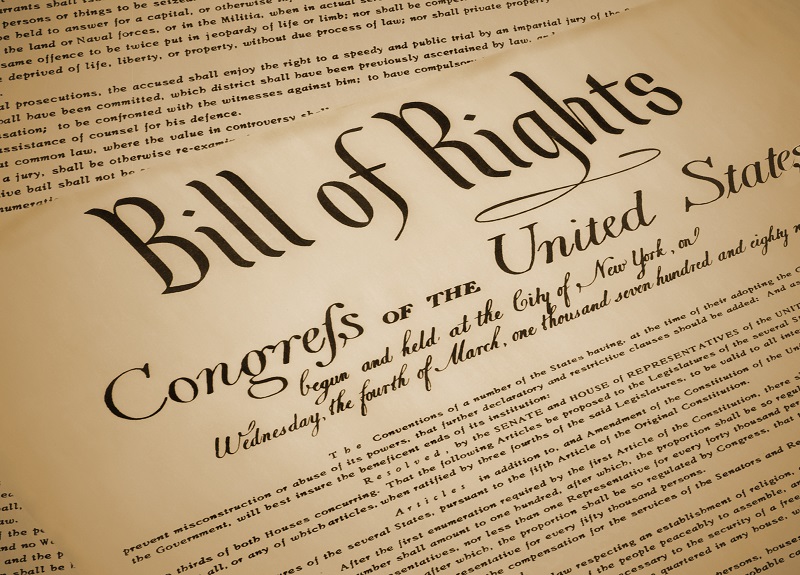 persons or things to be seized.
be held to answer for a capital, or otherwise
the land or Naval forces, or in the Militia, when in actual
same offence to be twice put in jeopardy of life or limb; nor shall be
deprived of life, liberty, or property, without due process of law; nor shall private property
prosecutions, the accused shall enjoy the right to a speedy and public trial by an impartial jury of the
have been committed, which district shall have been previously ascertained by law, an
to be confronted with the witnesses against him; to have compulsor
assistance of counsel for his defence.
common law, where the value in controversy
a jury, shall be otherwise re-exami
bail shall not be
Bill of Rights
Congreſs OF THE United States
begun and held at the City of New York, on
Wednesday, the fourth of March, one thousand seven hundred and eighty
The Conventions of a number of the States having, at the time of their adopting the
prevent misconstruction or abuse of its powers, that further declaratory and restrictive clauses should be added: And as
the Government, will best insure the beneficent ends of its institution:
Resolved, by the SENATE and HOUSE of REPRESENTATIVES of the UNIT
thirds of both Houses concurring. That the following Articles be proposed to the Legislatures of the several S
all, or any of which articles, when ratified by three fourths of the said Legislatures, to be valid to all inte
Articles in addition to, and Amendment of the Constitution of the Uni
of the several States, pursuant to the fifth Article of the Original Constitution.
After the first enumeration required by the first Article of the Constitution, there
shall amount to one hundred, after which, the proportion shall be so regul
nor less than one Representative for every forty thousand per
after which, the proportion shall be so regulated by Congress, that
for every fifty thousand persons.
compensation for the services of the Senators and Re
law respecting an establishment of religion,
the people peaceably to assemble, an
necessary to the security of a free
quartered in any house,